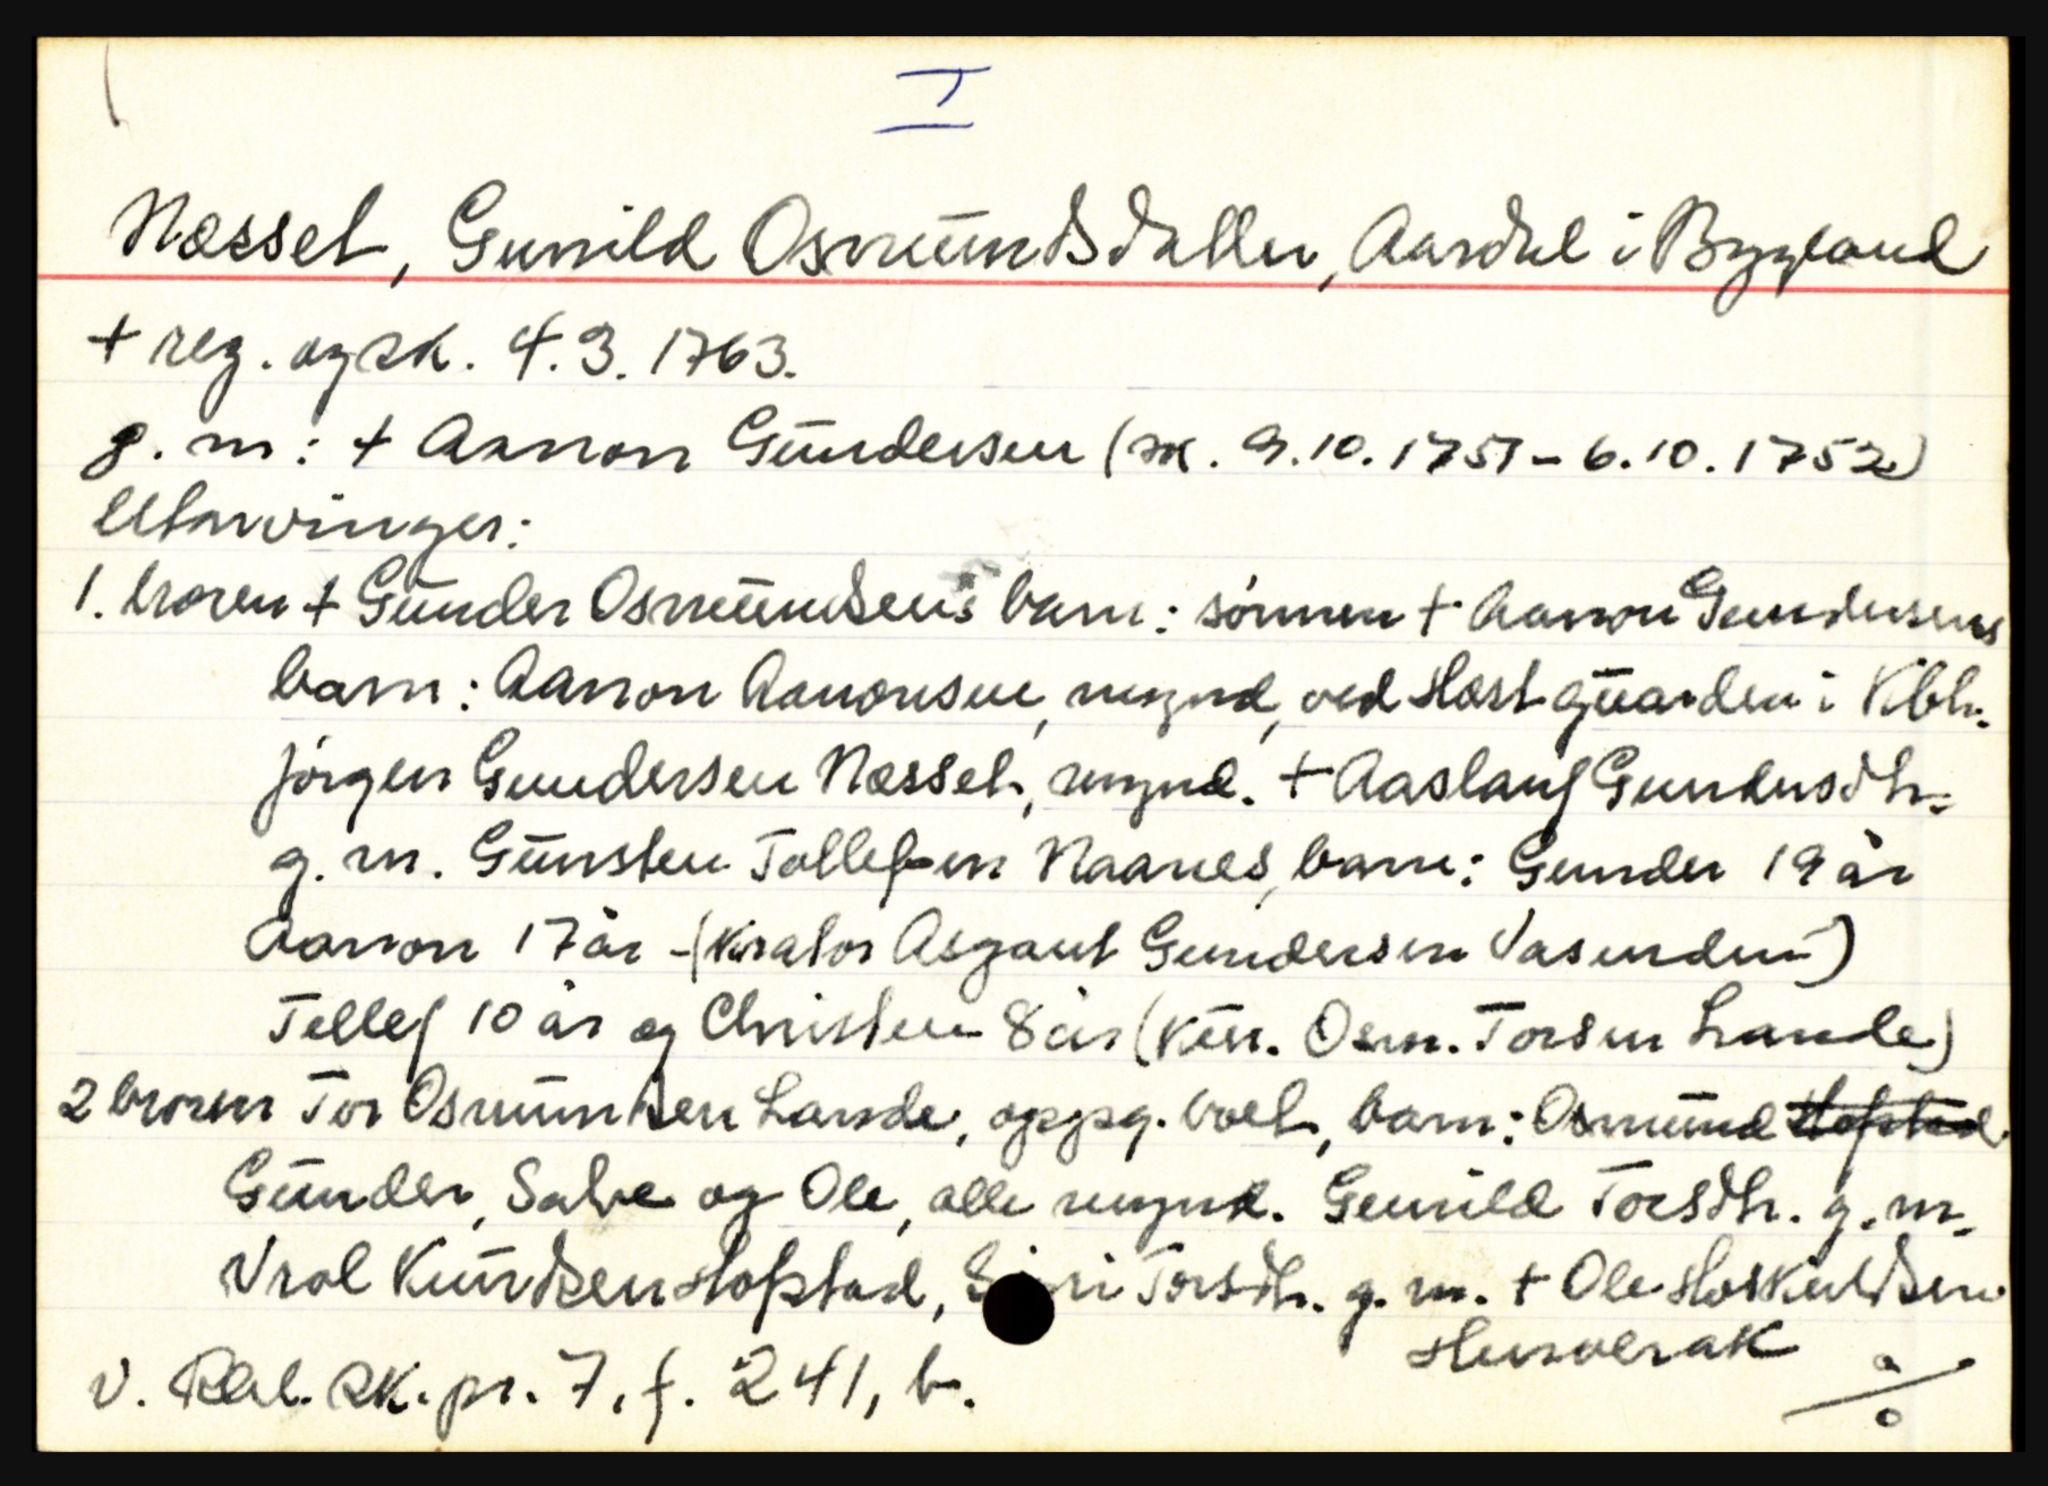 I
Næsset, Gunild Osmundsdatter, Aardal i Bygland
+ reg. og sk. 4.3.1763.
g. m: + Aanon Gundersen (sk. 9.10.1751 - 6.10.1752)
Utarvinger:
1. broren + Gunder Osmundsens barn: sønnen + Aanon Gundersens
barn: Aanon Aanonsen, mynd, ved Hæstguarden i Kbh.
Jørgen Gundersen Næsset, mynd. + Aaslaug Gundersdtr.
g. m. Gunsten Tollefsen Naanes, barn: Gunder 19 år
Aanon 17 år - (Kurator Asgaut Gundersen Vasenden)
Tellef 10 år og Christen 8 år (Kur. Osm. Torsen Lande)
2 broren Tor Osmundsen Lande, oppg. boet, barn: Osmund Hofstad
Gunder, Salve og Ole, alle mynd. Gunild Torsdtr. g. m.
Vral Knudsen Hofstad, Torsdtr. g. m. + Ole Hoskuldsen
Hunverak
v. Rbl. sk. pr. 7, f. 241, b.
%